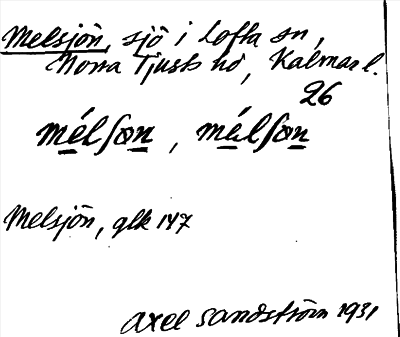 Melsjön, sjö i Lofta sn,
Norra Tjusts hd, Kalmar l.
26
mélʃøn, mélʃøn
Melsjön, glk 147
Axel Sandström 1931